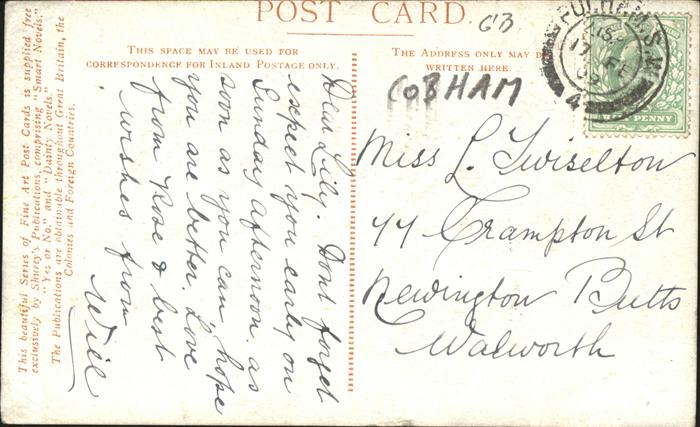 POST CARD.
GB
THIS SPACE MAY BE USED FOR
CORRESPONDENCE FOR INLAND POSTAGE ONLY.
THE ADDRESS ONLY MAY
WRITTEN HERE.
COBHAM
FULHAM. S.W.
17 FE
4
PENNY
This beautiful Series of Fine Art Post Cards is supplied free
exclusively by Shurey's Publications, comprising "Smart Novels,"
"Yes or No," and "Dainty Novels."
The Publications are obtainable throughout Great Britain, the
Colonies and Foreign Countries.
Dear Lilly. Dont forget
expect you early on
Sunday afternoon as
soon as you can, hope
you are better, Love
from Rose & best
wishes from
Will
Miss L. Twiselton
44 Crampton St
Newington Butts
Walworth